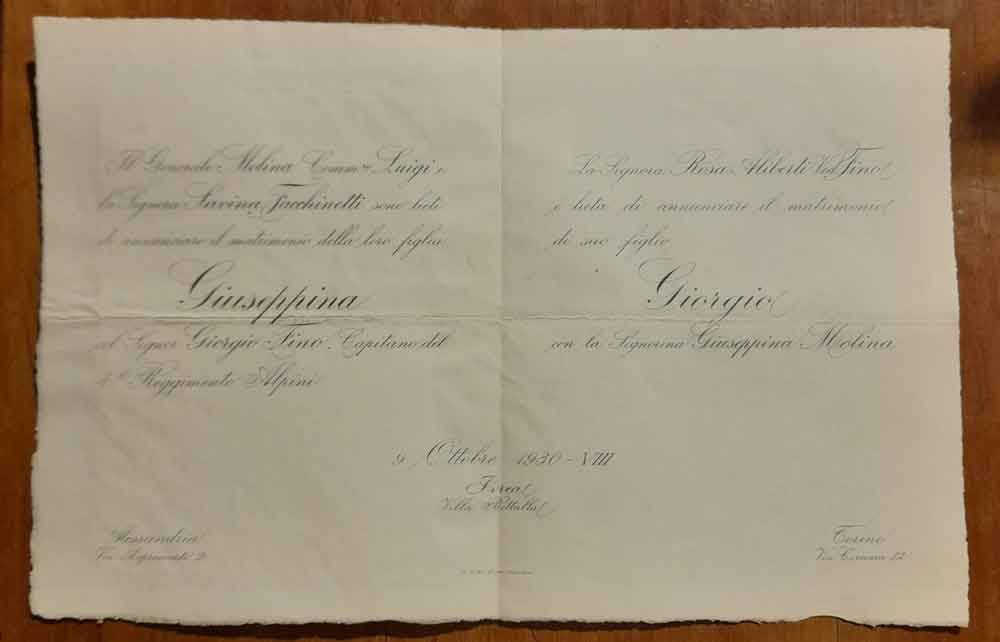 Il Generale Molina Comm. Luigi e
la Signora Savina Facchinetti sono lieti
di annunciare il matrimonio della loro figlia
Giuseppina
al Signor Giorgio Fino, Capitano del
Reggimento Alpini
La Signora Rosa Aliberti Ved. Fino
è lieta di annunciare il matrimonio
di suo figlio
Giorgio
con la Signorina Giuseppina Molina
9 Ottobre 1930 - VIII
Ivrea
Villa
Alessandria
Via 2
Torino
Via